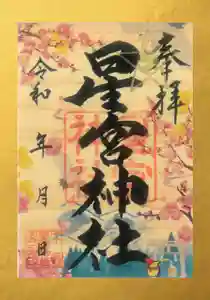 奉拝
星宮神社
令和 年 月 日